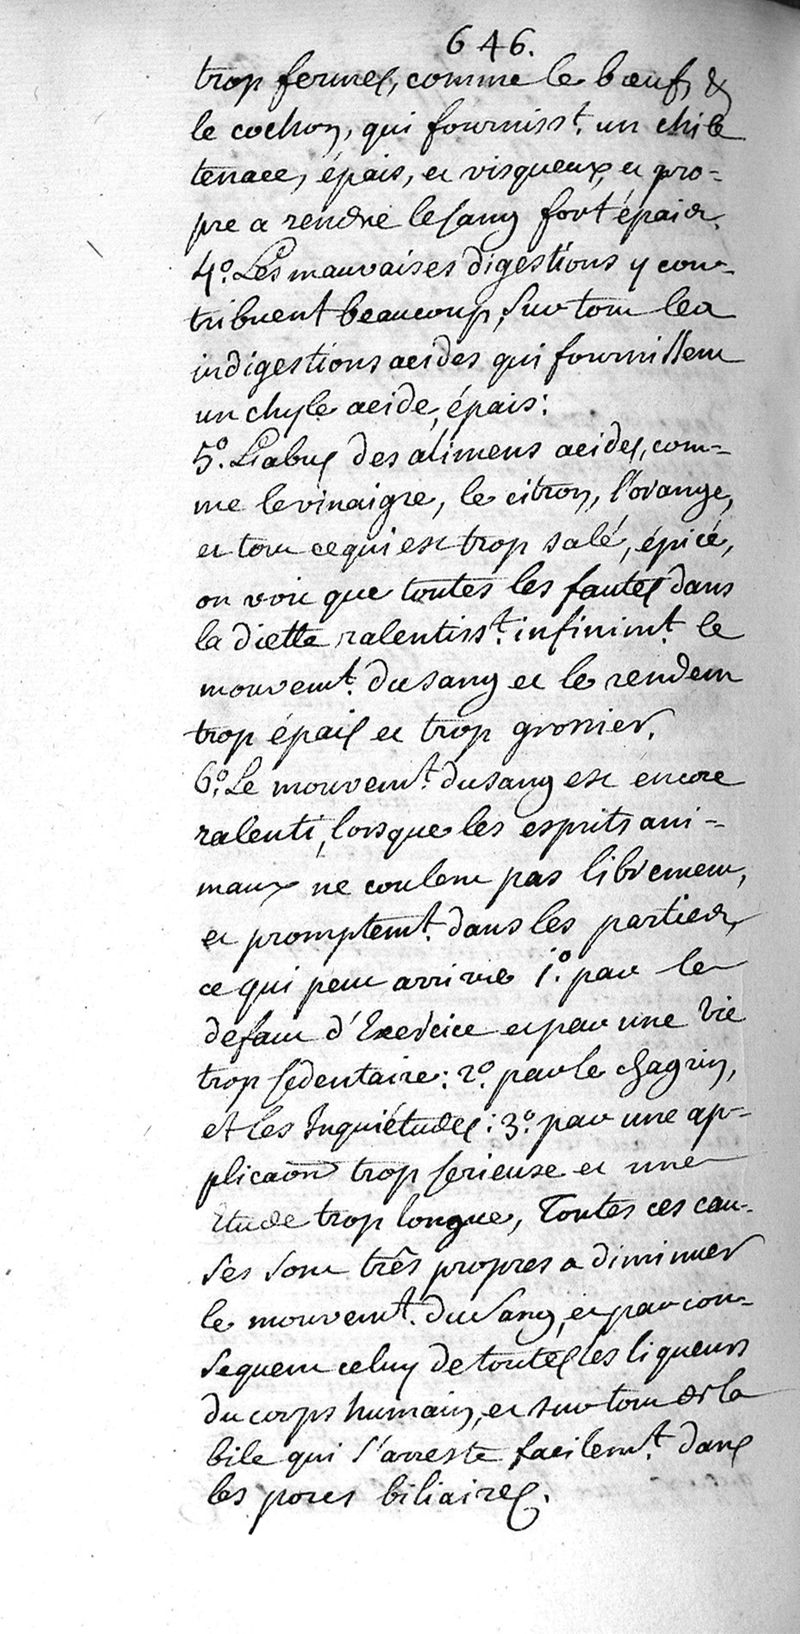 646.
trop fermes, comme le bœuf, &
le cochon, qui fourniss.t un chile
tenace, épais, et visqueux, et pro-
pre a rendre le sang fort épais.
4.° Les mauvaises digestions y con-
tribuent beaucoup, sur tout les
indigestions acides qui fournissent
un chyle acide, épais:
5.° L'abus des alimens acides, com-
me le vinaigre, le citron, l'orange,
et tout ce qui est trop salé, épicé,
on voit que toutes les fautes dans
la diette ralentiss.t infinim.t le
mouvem.t du sang et le rendent
trop épais et trop grossier.
6.° Le mouvem.t du sang est encore
ralenti, lorsque les esprits ani-
maux ne coulent pas librement,
et promptem.t dans les parties,
ce qui peut arriver 1.° par le
defaut d'Exercice et par une Vie
trop sedentaire: 2.° par le chagrin,
et les Inquiétudes: 3.° par une ap-
plicaôn trop serieuse et une
Etude trop longue, Toutes ces cau-
ses sont três propres a diminuer
le mouvem.t du sang, et par con-
sequent celuy de toutes les liqueurs
du corps humain, et sur tout de la
bile qui s'arreste facilem.t dans
les pores biliaires.